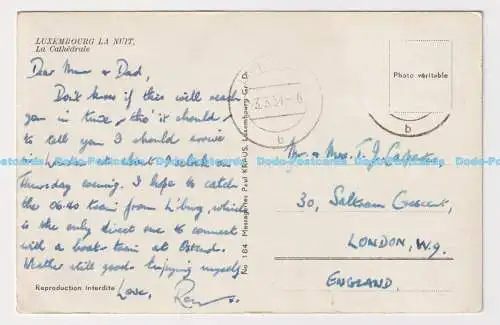 LUXEMBOURG LA NUIT.
La Cathédrale
Dear Mum & Dad,
Don't know if this will reach
you in time, tho' it should,
to tell you I should arrive
in London at about
Thursday evening. I hope to catch
the 06.40 train from L'burg, which
is the only direct one to connect
with a boat train at Ostend.
Weather still good. Enjoying myself
Love,
Reproduction Interdite
No 184 Messageries Paul KRAUS, Luxembourg Gr. D.
Photo véritable
b
b
Mr. & Mrs. T. J.
30, Saltram Crescent,
LONDON, W.9.
ENGLAND.